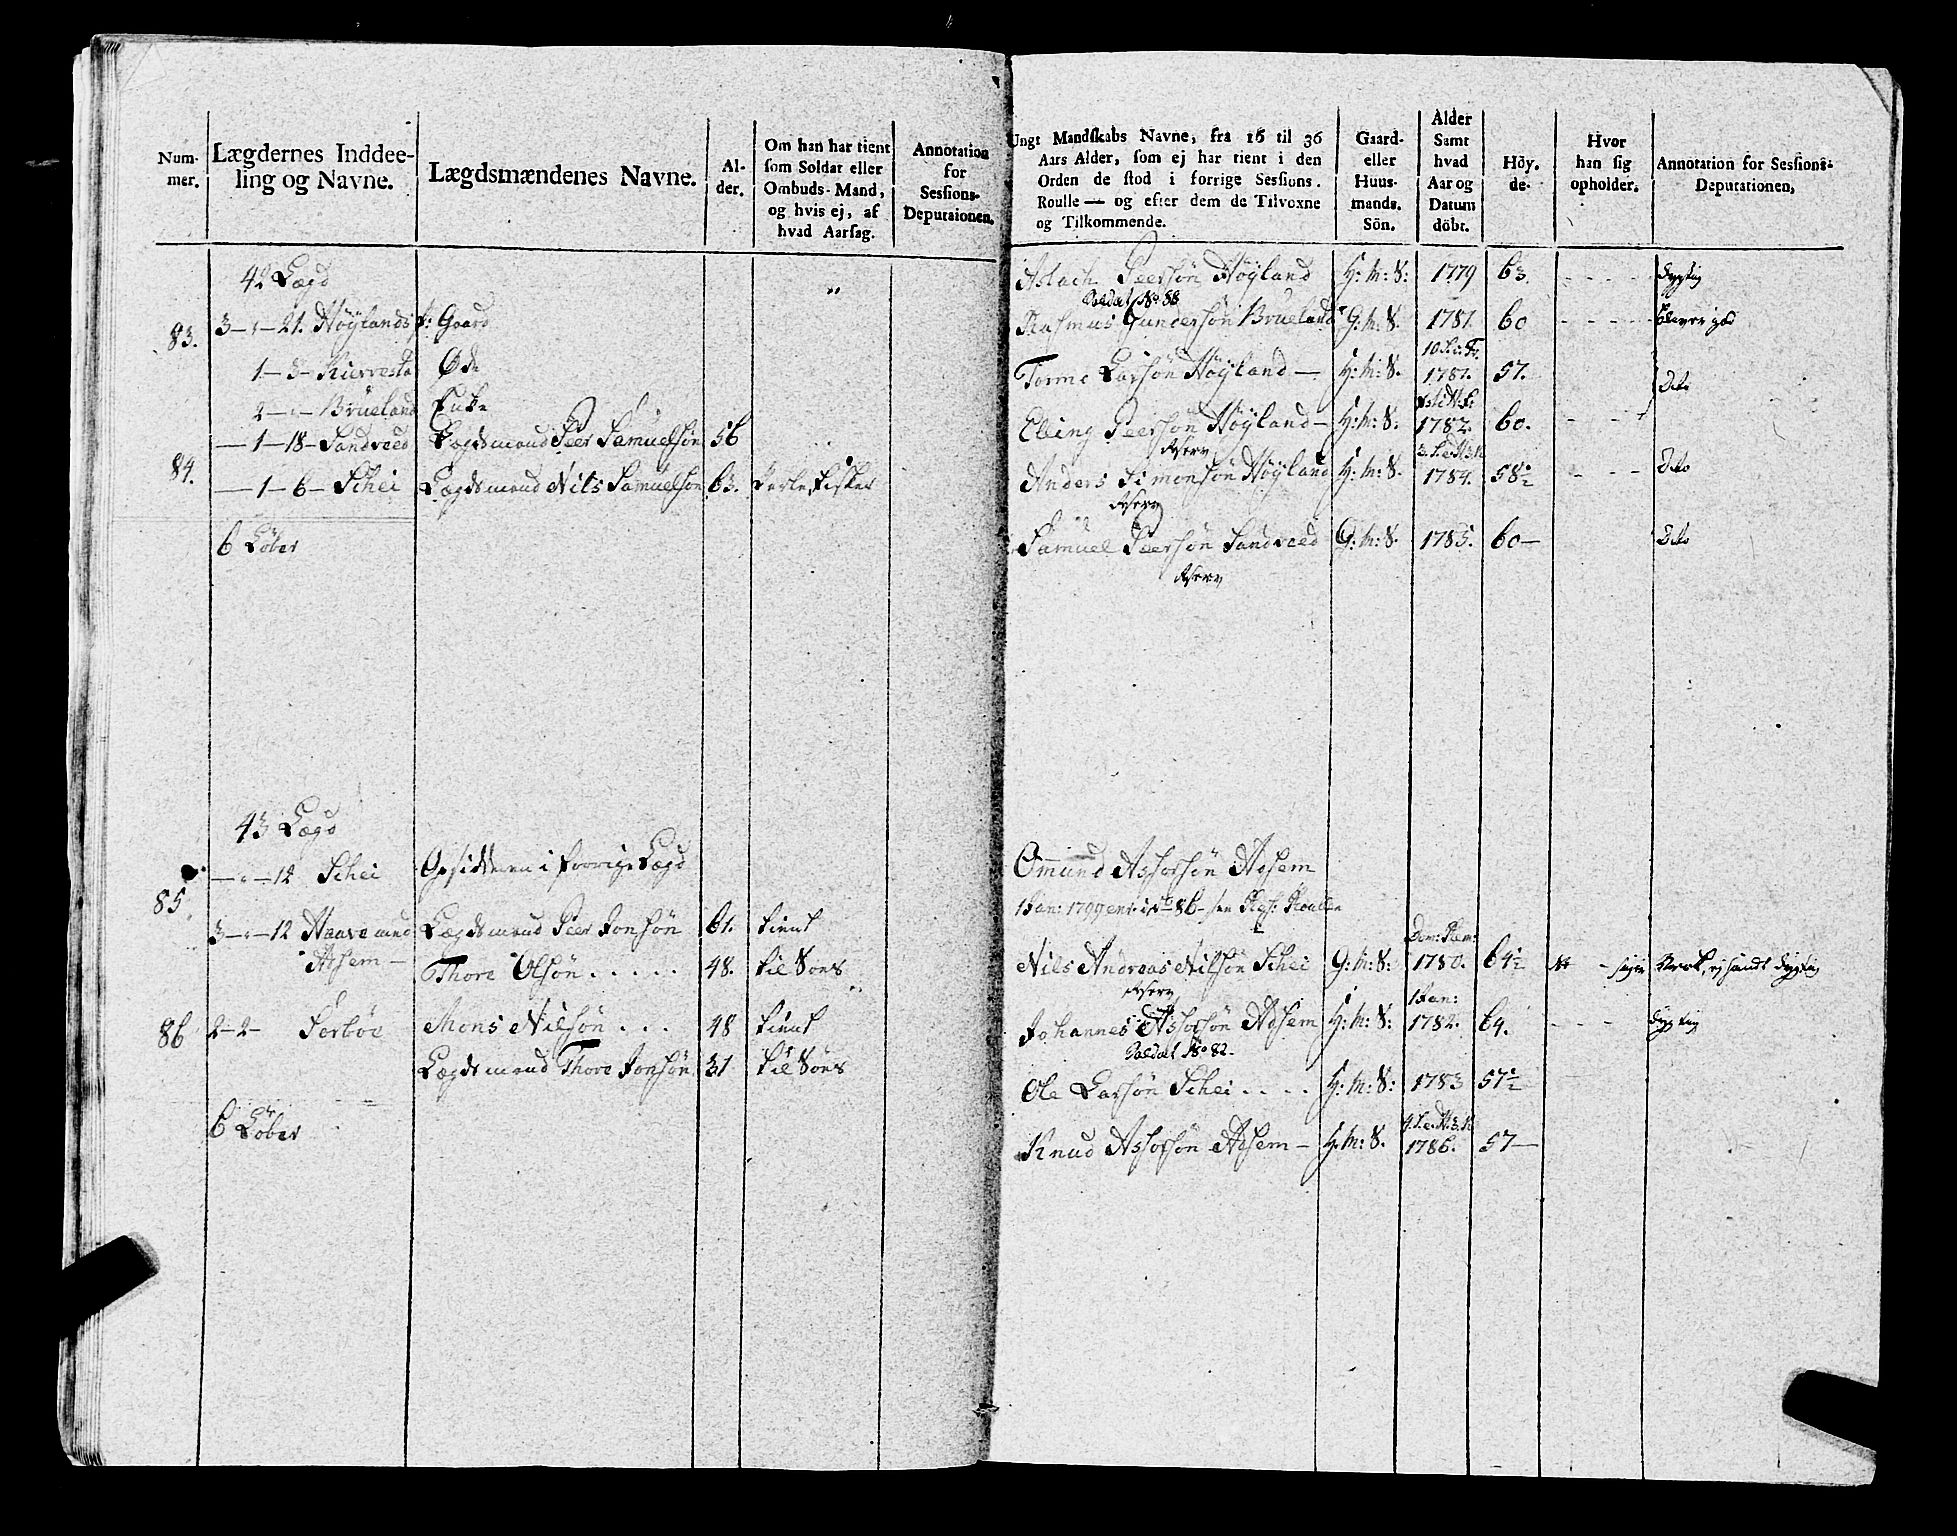 Num-
mer.
Lægdernes Inddee-
ling og Navne.
Lægdsmændenes Navne.
Al-
der.
Om han har tient
som Soldat eller
Ombuds-Mand,
og hvis ej, af
hvad Aarsag.
Annotation
for
Sessions-
Deputationen.
42 Lægd
83. 3-"-21. Höylands P: Gaard
1-3- Kierresta Øde
2-"- Brueland Enke
-1-18- Sandveed Lægdsmand Peer Samuelsön 56
84. -1-6- Schei Lægdsmand Nils Samuelsön 63. Perle Fisker
6 Löber
43 Lægd
85. -"-12 Schei Opsidderen i forrige Lægd
3-"-12 Haave med Lægdsmand Peer Jonsön 61. tient
Asem- Thore Olsön..... 48. til Soes
86 2-2- Sörböe Mons Nilsön... 48 tient
Lægdsmand Thore Jonsön 31 til Soes
6 Löber
Ungt Mandskabs Navne, fra 16 til 36
Aars Alder, som ej har tient i den
Orden de stod i forrige Sessions.
Roulle — og efter dem de Tilvoxne
og Tilkommende.
Gaard-
eller
Huus-
mands.
Sön.
Alder
Samt
hvad
Aar og
Datum
döbt.
Höy.
de-
Hvor
han sig
opholder.
Annotation for Sessions-
Deputationen.
Aslach Peersön Höyland H:M:S: 1779 63. dygtig
Soldat No 88
Rasmus Gundersön Brueland G:M:S. 1781. 60
Tonne Larsön Höyland- H:M:S. 1781. 57. Dito
Elling Peersön Höyland- H:M:S. 1782. 60.
Reserv
Anders Simonsön Höyland H:M:S. 1784. 58½ Dito
Reserv
Samuel Peersön Sandveed G:M:S. 1785. 60- Dito
Reserv
Omund Assorsön Adsem
1 Jan: 1799 No 86
Nils Andreas Nilsön Schei G:M:S: 1780. 64½ dygtig
Reserv
1 Jan:
Johannes Assorsön Adsem H:M:S: 1782. 64. dygtig
Soldat No 82.
Ole Larsön Schei.... H:M:S: 1783 57½
Knud Assorsön Adsem- H:M:S. 1786. 57-